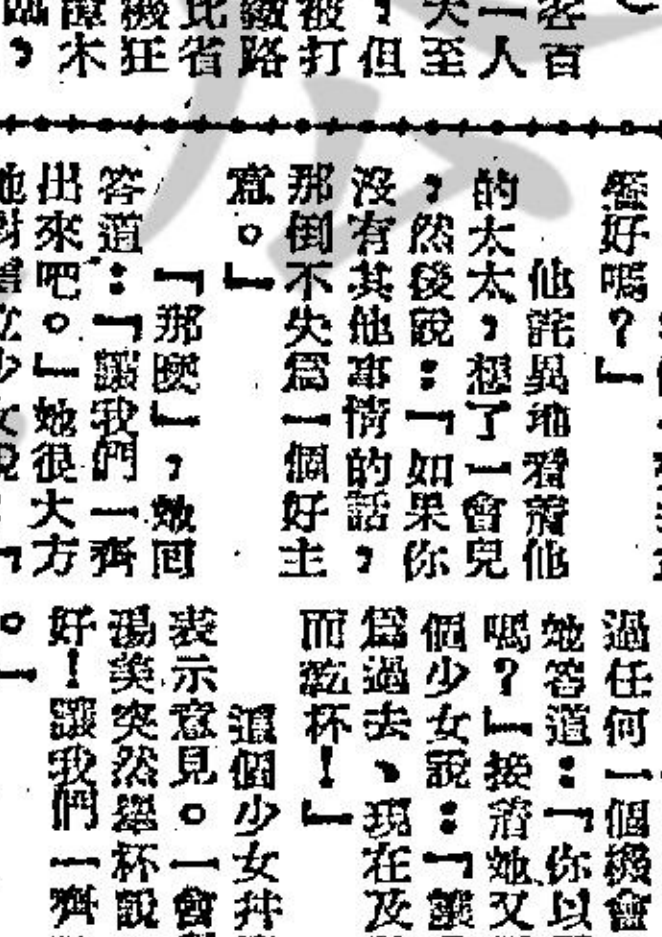 客百
一人
天至
，但
被打
鐵路
比省
機狂
譁木
臨，
签好嗎？」
他詫異地看着他
的太太，想了一會兒
，然後說：「如果你
沒有其他事情的話，
那倒不失爲一個好主
意。」
「那麽」，她回
答道：「讓我們一齊
出來吧。」她很大方
過任何一個機會
她答道：「你以
嗎？」接着她又
個少女說：「讓
爲過去、現在及
而乾杯！」
這個少女幷
表示意見。一會
湯美突然舉杯說
好！讓我們一齊
。」